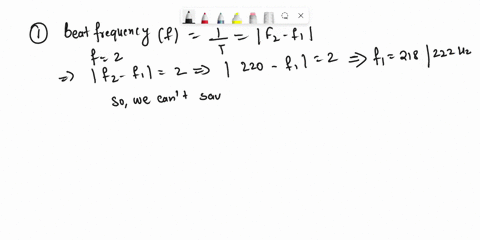 ① Beat frequency (f) = 1/T = |f₂ - f₁|
f = 2
⇒ |f₂ - f₁| = 2 ⇒ | 220 - f₁| = 2 ⇒ f₁ = 218 | 222 Hz
So, we can't sav